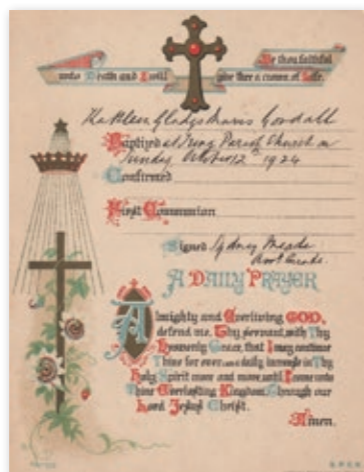 Be thou faithful
unto Death and I will give thee a crown of Life.
Kathleen Gladys Goodall
Baptized at Tring Parish Church on
Sunday October 12th 1924
Confirmed
First Communion
Signed Sydney Meade
A DAILY PRAYER
Almighty and Everliving GOD,
defend me, Thy servant, with Thy
Heavenly Grace, that I may continue
Thine for ever: and daily increase in Thy
Holy Spirit more and more, until I come unto
Thine Everlasting Kingdom, Through our
Lord Jesus Christ.
Amen.